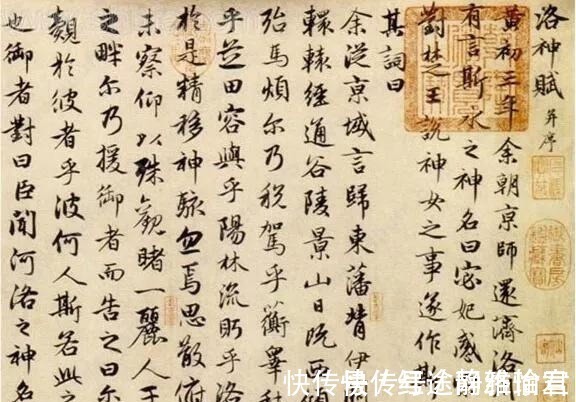 洛神賦 并序
黃初三年余朝京師還濟洛
有言斯水之神名曰宓妃感
對楚王說神女之事遂作
其詞曰
余從京域言歸東藩背伊
轘轅經通谷陵景山日既西
殆馬煩尔乃稅駕乎蘅皋秣
乎芝田容與乎陽林流眄乎洛
於是精移神駭忽焉思散俯
未察仰以殊觀睹一麗人于
之畔尔乃援御者而告之曰尔
覿於彼者乎彼何人斯若此之
也御者對曰臣聞河洛之神名
快传号